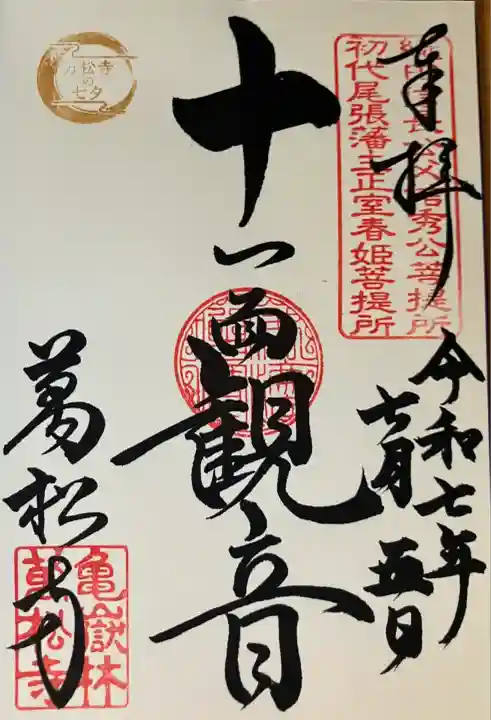 奉拝
織田信長公父君信秀公菩提所
初代尾張藩主正室春姫菩提所
令和七年
七月五日
十一面観音
万松寺
の
七夕
萬松寺
亀嶽林
萬松寺